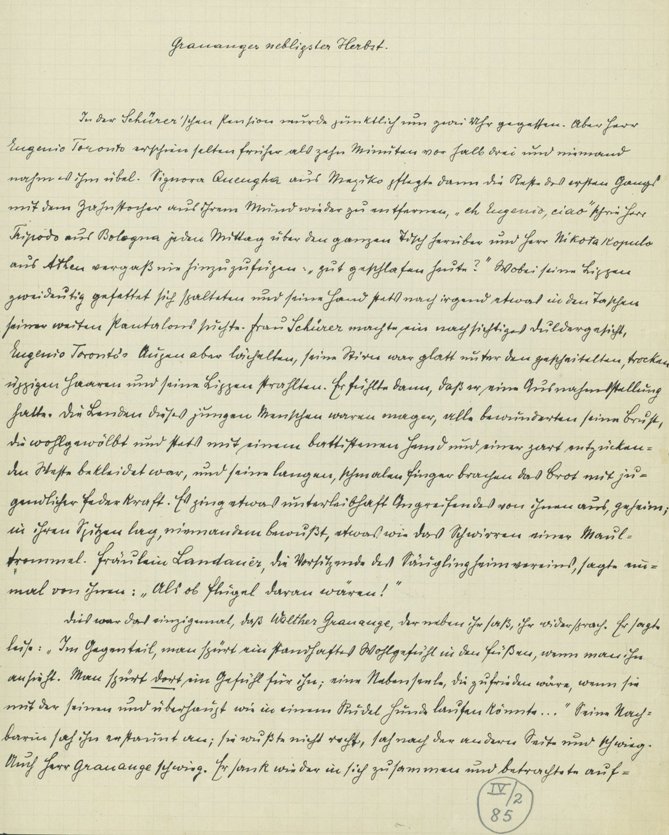 Grauauges nebligster Herbst.
In der Schürer'schen Pension wurde pünktlich um zwei Uhr gegessen. Aber Herr
Eugenio Torondo erschien selten früher als zehn Minuten vor halb drei und niemand
nahm es ihm übel. Signora Quengha aus Mexiko pflegte dann die Reste des ersten Gangs
mit dem Zahnstocher aus ihrem Mund wieder zu entfernen, „eh Eugenio, ciao" schrie Herr
Tripodo aus Bologna jeden Mittag über den ganzen Tisch herüber und Herr Nikotakopulo
aus Athen vergaß nie hinzuzufügen: „gut geschlafen heute?" Wobei seine Lippen
zweideutig gefettet sich spalteten und seine Hand stets nach irgend etwas in den Taschen
seiner weiten Pantalons suchte. Frau Schürer machte ein nachsichtiges Duldergesicht,
Eugenio Torondo's Augen aber lächelten, seine Stirn war glatt unter den gescheitelten, trocken
üppigen Haaren und seine Lippen strahlten. Er fühlte dann, daß er eine Ausnahmstellung
hatte. Die Lenden dieses jungen Menschen waren mager, alle bewunderten seine Brust,
die wohlgewölbt und stets mit einem battistenen Hemd und einer zart entzücken-
den Weste bekleidet war, und seine langen, schmalen Finger brachen das Brot mit ju-
gendlicher Federkraft. Es ging etwas unterleibhaft Angreifendes von ihnen aus, geheim;
in ihren Spitzen lag, niemandem bewußt, etwas wie das Schwirren einer Maul-
trommel. Fräulein Landauer, die Vorsitzende des Säuglingheimvereins, sagte ein-
mal von ihnen: „Als ob Flügel daran wären!"
Dies war das einzigemal, daß Walther Grauauge, der neben ihr saß, ihr widersprach. Er sagte
leise: „Im Gegenteil, man spürt ein standhaftes Wohlgefühl in den Füßen, wenn man ihn
ansieht. Man spürt dort ein Gefühl für ihn; eine Nebenseele, die zufrieden wäre, wenn sie
mit der seinen und überhaupt wie in einem Rudel Hunde laufen könnte..." Seine Nach-
barin sah ihn erstaunt an; sie wußte nicht recht, sah nach der andern Seite und schwieg.
Auch Herr Grauauge schwieg. Er sank wieder in sich zusammen und betrachtete auf-
IV/2
85